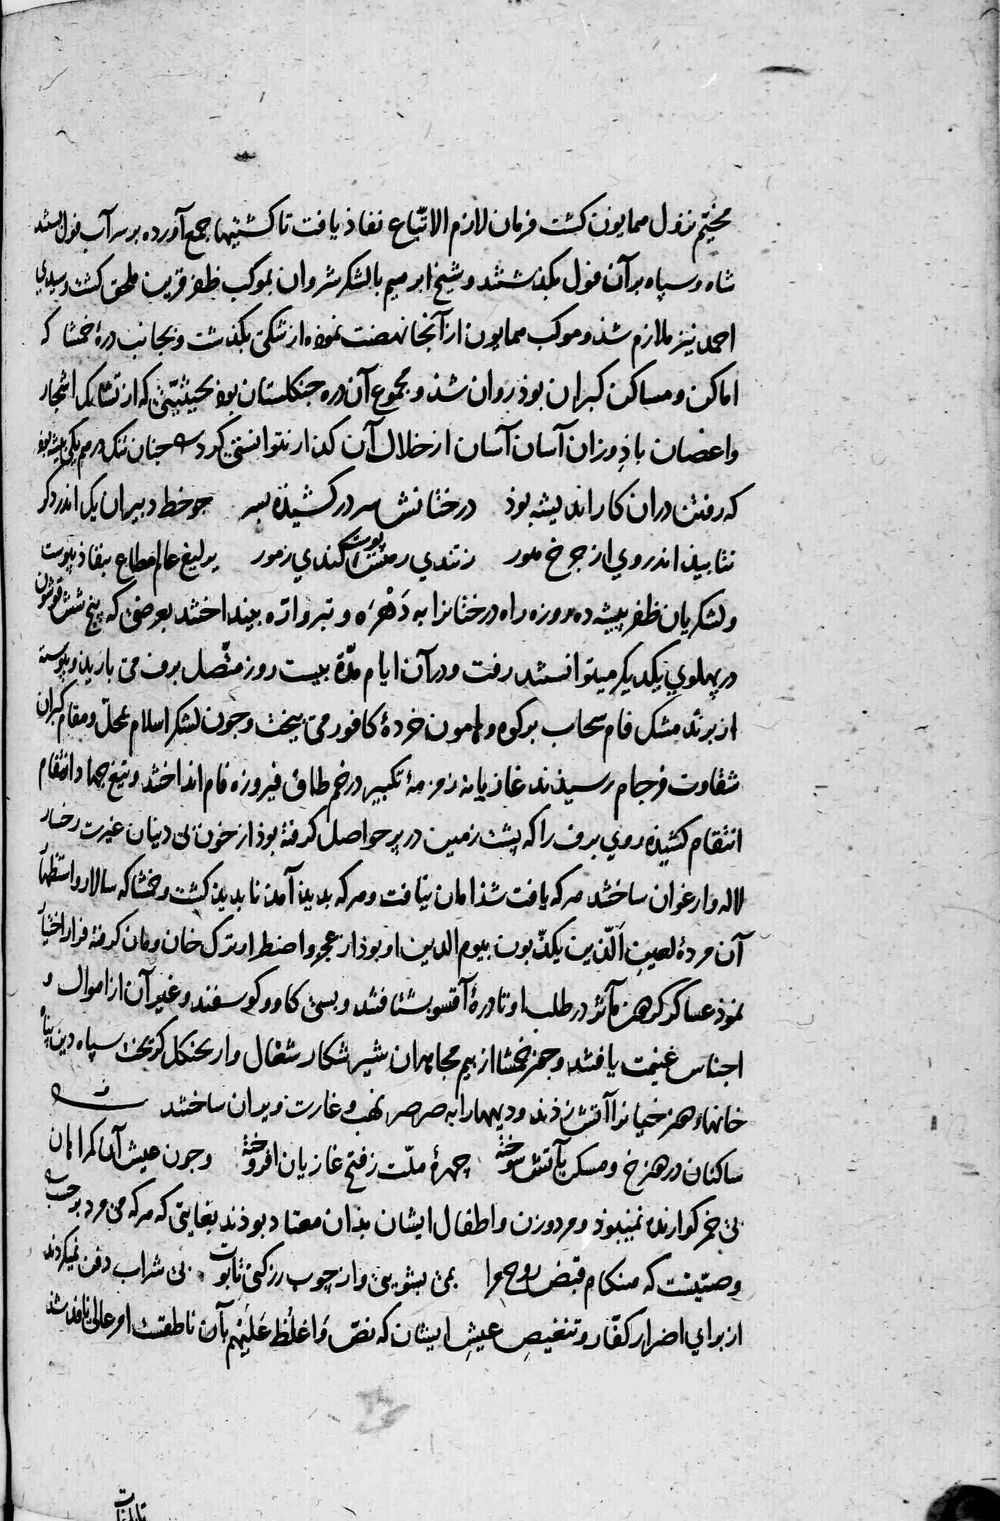 مخیّم نزول همایون کشت فرمان لازم الاتّباع نفاذ یافت تا کشتیها جمع آورده بر سر آب قول بستند
شاه و سپاه بر آن قول بکذشتند و شیخ ابرهیم با لشکر شروان بموکب ظفر قرین ملحق کشت و سیدی
احمد نیز ملازم شد و موکب همایون از آنجا نهضت نموده از شکی بکذشت و بجانب درهٔ خمشا که
اماکن و مساکن کبران بوذ روان شذ و مجموع آن دره جنکلستان بوذ بحیثیّتی که از تشابک اشجار
و اغصان باذ وزان آسان آسان از خلال آن کذار نتوانستی کرد جنان تنک درهم یکی بیشه بوذ
که رفتن دران کار اندیشه بوذ درختانش سر در کشیذه بسر جو خط دبیران یک اندر دکر
نتابیذ اندروی از جرخ هور ز تندی رهش پوست کندی ز مور یرلیغ عالم مطاع بنفاذ پیوست
و لشکریان ظفر پیشه ده روزه راه درختانرا به دَهْرَه و تبر و ارّه بینداختند بعرضی که پنج شش قوشون
در پهلوی یکدیکر میتوانستند رفت و در آن ایام مدّة بیست روز متّصل برف می بارید و پیوسته
از پرند مشک فام سحاب بر کوه و هامون خردهٔ کافور می بیخت و جون لشکر اسلام بمحلّ و مقام کبران
شقاوت فرجام رسیذند غازیان زمزمهٔ تکبیر در خم طاق فیروزه فام انداختند و تیغ جهاد انتقام
انتقام کشیذه روی برف را که پشت زمین در پر حواصل کرفته بوذ از خون بی دینان غیرت رخسار
لاله و ارغوان ساختند هرکه یافت شذ امان نیافت و هرکه بدید آمذ نابدید کشت و خمشا که سالار و استظهار
آن مردهٔ لعین الّذین یکذّبون بیوم الدین او بوذ از عجز و اضطرار ترک خان و مان کرفته فرار اختیار
نموذ عساکر کردون مآثر در طلب او تا درهٔ آقسو بشتافتند و بسی کاو و کوسفند و غیر آن از اموال و
اجناس غنیمت یافتند و جون خمشا از بیم مجاهدان شیر شکار شغال وار بجنکل کریخت سپاه دین پناه
خانهای هرزخیانرا آتش زدند و دیهها را به صرصر نهب و غارت ویران ساختند
ساکنان در هرزخ و مسکن بآتش سوخته جهرهٔ ملّت ز فتح غازیان افروخته وجون عیش آن کمراهان
بی خمر کوارنده نمیبوذ و مرد و زن و اطفال ایشان بذان معتاد بوذند بغایتی که هرکه می مرد بوجب
وصیّتست که هنکام قبض روح مرا بمی بشویی و از چوب رز کنی تابوت بی شراب دفن نمیکردند
از برای اضرار کفّار و تنغیص عیش ایشان که نصّ وَاغلُظ عَلَیهِم بآن ناطقست امر عالی نافذ شذ